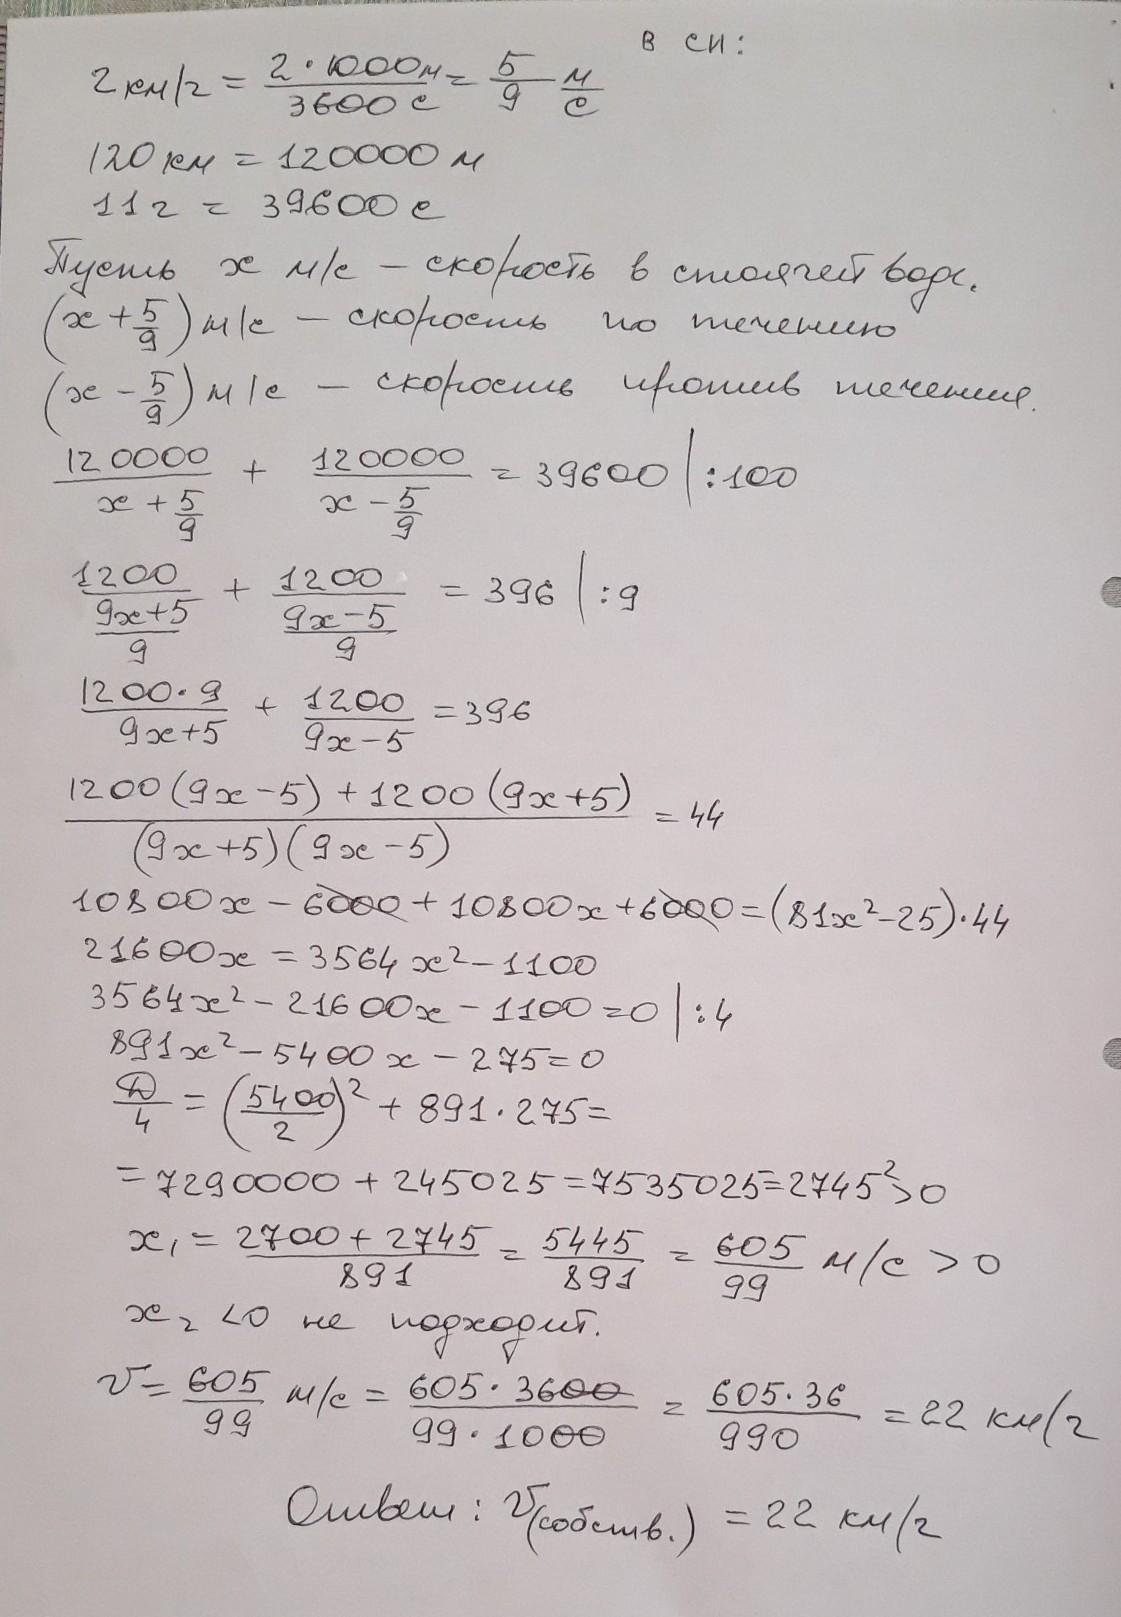 в СИ:
2 км/ч = 2·1000м/3600с = 5/9 м/с
120 км = 120000 м
11 ч = 39600 с
Пусть x м/с – скорость в стоячей воде.
(x + 5/9) м/с – скорость по течению
(x – 5/9) м/с – скорость против течения.
120000/(x + 5/9) + 120000/(x – 5/9) = 39600 | :100
1200/((9x+5)/9) + 1200/((9x–5)/9) = 396 | :9
1200·9/(9x+5) + 1200/(9x–5) = 396
(1200(9x–5) + 1200(9x+5))/((9x+5)(9x–5)) = 44
10800x – 6000 + 10800x + 6000 = (81x²–25)·44
21600x = 3564x² – 1100
3564x² – 21600x – 1100 = 0 | :4
891x² – 5400x – 275 = 0
D/4 = (5400/2)² + 891·275 =
= 7290000 + 245025 = 7535025 = 2745² > 0
x₁ = (2700 + 2745)/891 = 5445/891 = 605/99 м/с > 0
x₂ < 0 не подходит.
v = 605/99 м/с = 605·3600/99·1000 = 605·36/990 = 22 км/ч
Ответ: v(собств.) = 22 км/ч